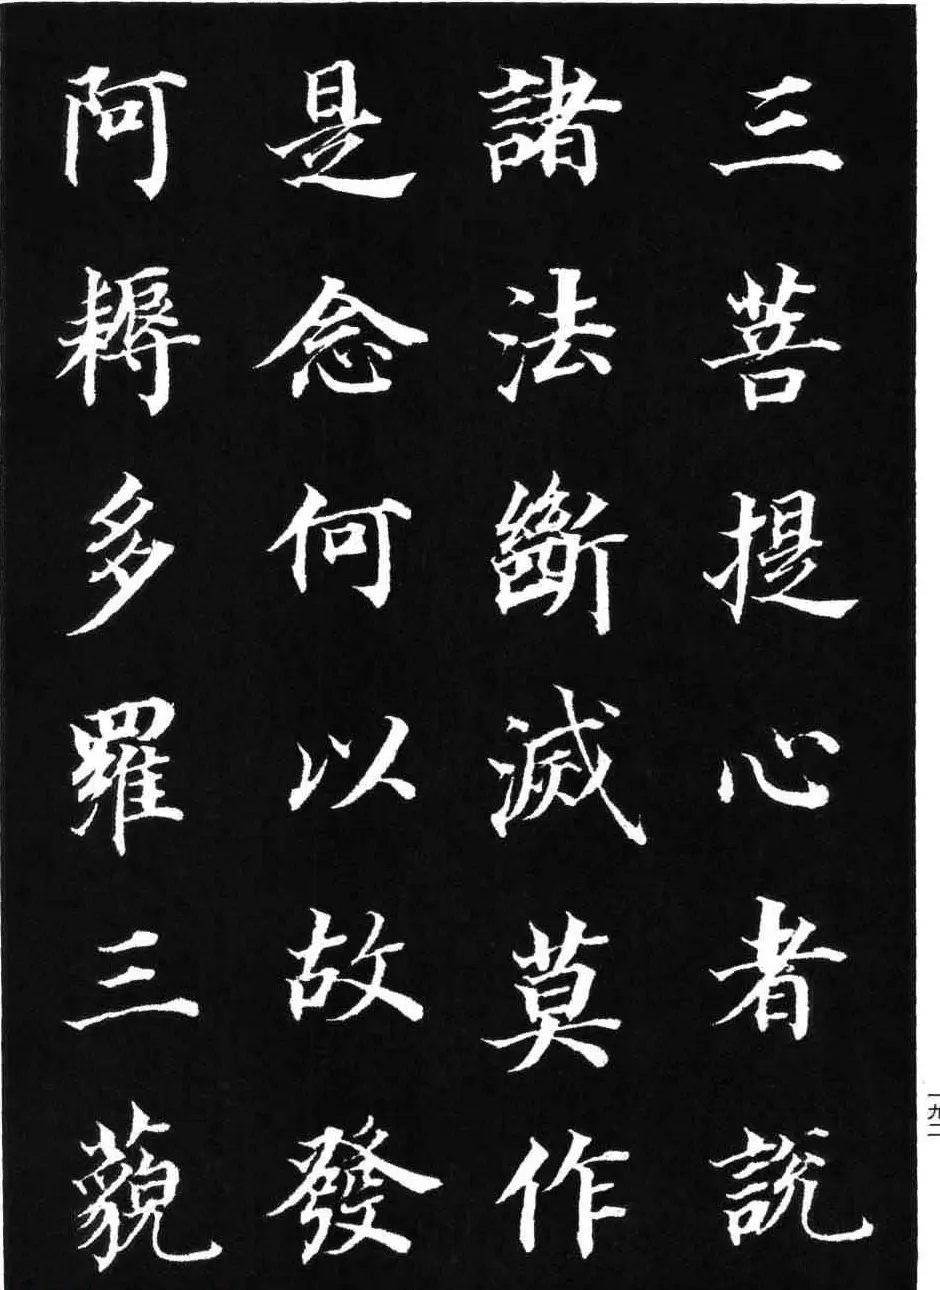 三菩提心者說
諸法斷滅莫作
是念何以故發
阿耨多羅三藐
一九二